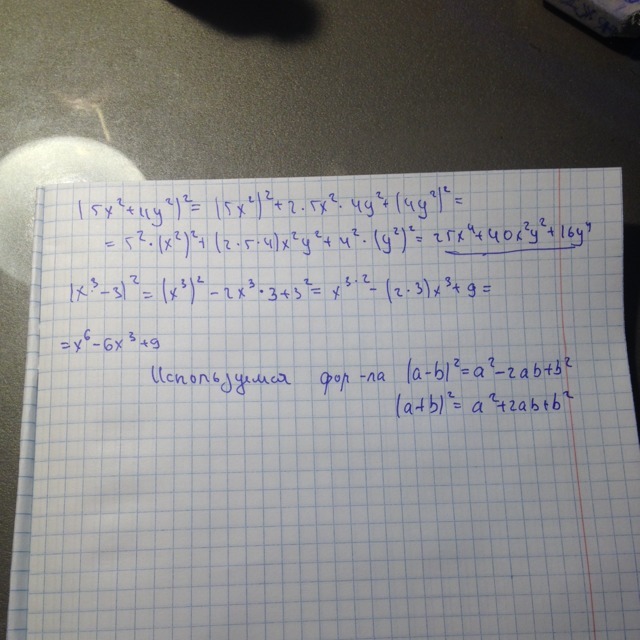 (5x²+4y²)² = (5x²)²+2·5x²·4y²+(4y²)² =
= 5²·(x²)²+(2·5·4)x²y²+4²·(y²)² = 25x⁴+40x²y²+16y⁴
(x³-3)² = (x³)²-2x³·3+3² = x³·²-(2·3)x³+9 =
=x⁶-6x³+9
Используемая фор-ла (a-b)²=a²-2ab+b²
(a+b)²= a²+2ab+b²